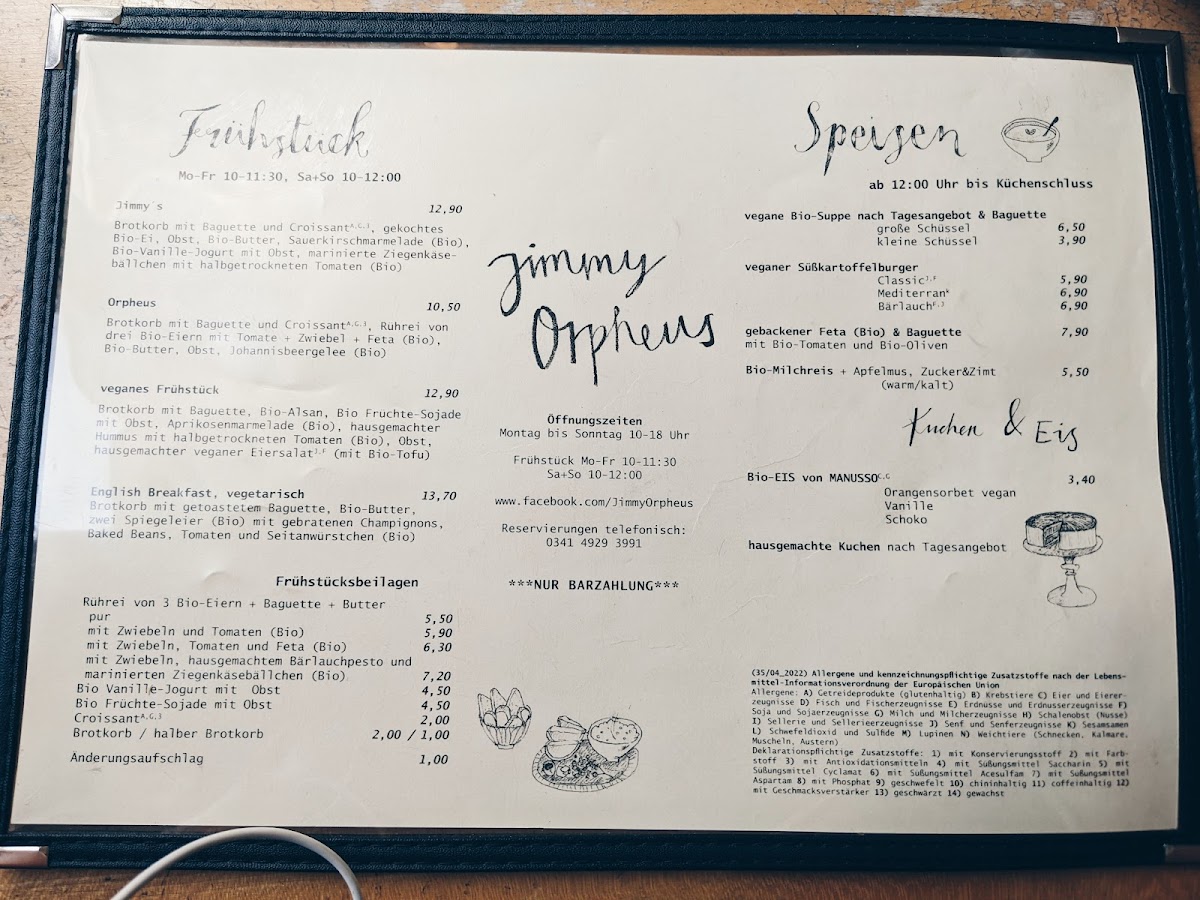 Frühstück
Mo-Fr 10-11:30, Sa+So 10-12:00
Jimmy´s 12,90
Brotkorb mit Baguette und Croissant A,G,3, gekochtes
Bio-Ei, Obst, Bio-Butter, Sauerkirschmarmelade (Bio),
Bio-Vanille-Jogurt mit Obst, marinierte Ziegenkäse-
bällchen mit halbgetrockneten Tomaten (Bio)
Orpheus 10,50
Brotkorb mit Baguette und Croissant A,G,3, Rührei von
drei Bio-Eiern mit Tomate + Zwiebel + Feta (Bio),
Bio-Butter, Obst, Johannisbeergelee (Bio)
veganes Frühstück 12,90
Brotkorb mit Baguette, Bio-Alsan, Bio Früchte-Sojade
mit Obst, Aprikosenmarmelade (Bio), hausgemachter
Hummus mit halbgetrockneten Tomaten (Bio), Obst,
hausgemachter veganer Eiersalat J,F (mit Bio-Tofu)
English Breakfast, vegetarisch 13,70
Brotkorb mit getoastetem Baguette, Bio-Butter,
zwei Spiegeleier (Bio) mit gebratenen Champignons,
Baked Beans, Tomaten und Seitanwürstchen (Bio)
Frühstücksbeilagen
Rührei von 3 Bio-Eiern + Baguette + Butter
pur 5,50
mit Zwiebeln und Tomaten (Bio) 5,90
mit Zwiebeln, Tomaten und Feta (Bio) 6,30
mit Zwiebeln, hausgemachtem Bärlauchpesto und
marinierten Ziegenkäsebällchen (Bio) 7,20
Bio Vanille-Jogurt mit Obst 4,50
Bio Früchte-Sojade mit Obst 4,50
Croissant A,G,3 2,00
Brotkorb / halber Brotkorb 2,00 / 1,00
Änderungsaufschlag 1,00
Jimmy
Orpheus
Öffnungszeiten
Montag bis Sonntag 10-18 Uhr
Frühstück Mo-Fr 10-11:30
Sa+So 10-12:00
www.facebook.com/JimmyOrpheus
Reservierungen telefonisch:
0341 4929 3991
***NUR BARZAHLUNG***
Speisen
ab 12:00 Uhr bis Küchenschluss
vegane Bio-Suppe nach Tagesangebot & Baguette
große Schüssel 6,50
kleine Schüssel 3,90
veganer Süßkartoffelburger
Classic J,F 5,90
Mediterran K 6,90
Bärlauch F,J 6,90
gebackener Feta (Bio) & Baguette 7,90
mit Bio-Tomaten und Bio-Oliven
Bio-Milchreis + Apfelmus, Zucker&Zimt 5,50
(warm/kalt)
Kuchen & Eis
Bio-EIS von MANUSSO C,G 3,40
Orangensorbet vegan
Vanille
Schoko
hausgemachte Kuchen nach Tagesangebot
(35/04_2022) Allergene und kennzeichnungspflichtige Zusatzstoffe nach der Lebens-
mittel-Informationsverordnung der Europäischen Union
Allergene: A) Getreideprodukte (glutenhaltig) B) Krebstiere C) Eier und Eierer-
zeugnisse D) Fisch und Fischerzeugnisse E) Erdnüsse und Erdnusserzeugnisse F)
Soja und Sojaerzeugnisse G) Milch und Milcherzeugnisse H) Schalenobst (Nüsse)
I) Sellerie und Sellerieerzeugnisse J) Senf und Senferzeugnisse K) Sesamsamen
L) Schwefeldioxid und Sulfide M) Lupinen N) Weichtiere (Schnecken, Kalmare,
Muscheln, Austern)
Deklarationspflichtige Zusatzstoffe: 1) mit Konservierungsstoff 2) mit Farb-
stoff 3) mit Antioxidationsmitteln 4) mit Süßungsmittel Saccharin 5) mit
Süßungsmittel Cyclamat 6) mit Süßungsmittel Acesulfam 7) mit Süßungsmittel
Aspartam 8) mit Phosphat 9) geschwefelt 10) chininhaltig 11) coffeinhaltig 12)
mit Geschmacksverstärker 13) geschwärzt 14) gewachst